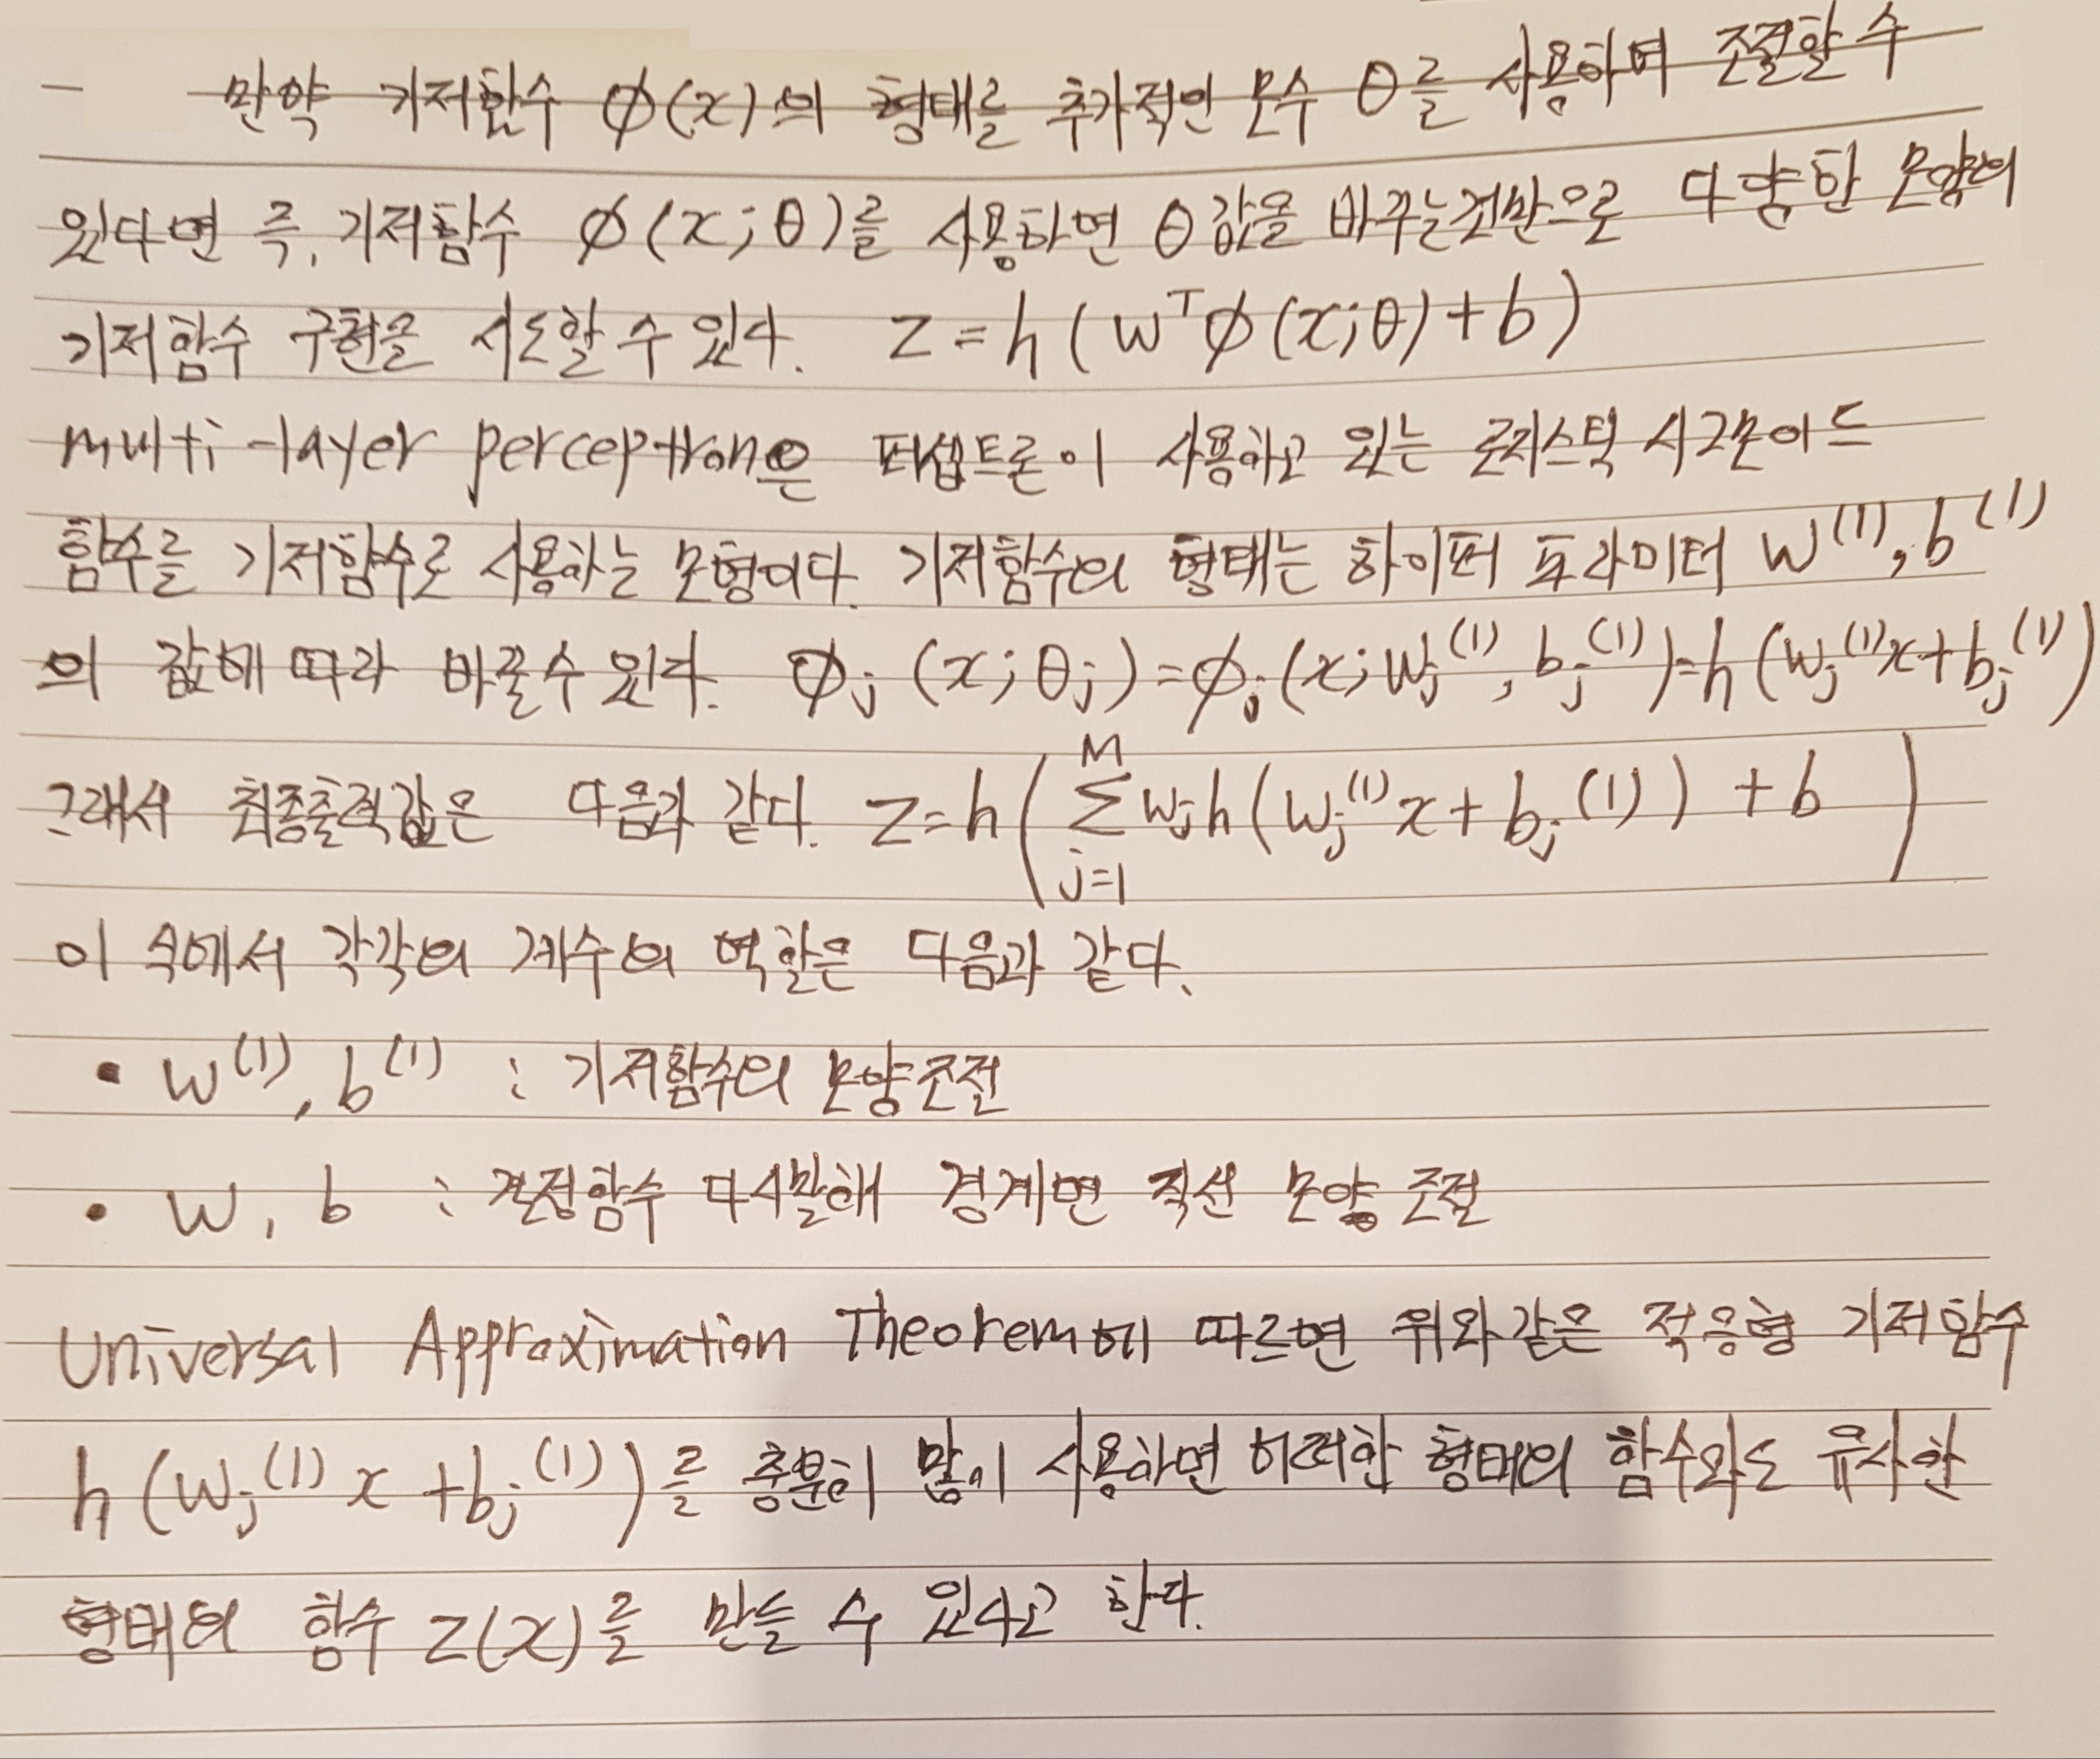 - 만약 기저함수 ϕ(x)의 형태를 추가적인 모수 θ를 사용하여 조절할 수
있다면 즉, 기저함수 ϕ(x;θ)를 사용하면 θ값을 바꾸는것만으로 다양한 모양의
기저함수 구현을 시도할 수 있다. z=h(w^Tϕ(x;θ)+b)
multi-layer perceptron은 퍼셉트론이 사용하고 있는 로지스틱 시그모이드
함수를 기저함수로 사용하는 모형이다. 기저함수의 형태는 하이퍼 파라미터 w^(1), b^(1)
의 값에 따라 바꿀수 있다. ϕ_j(x;θ_j)=ϕ_j(x;w_j^(1), b_j^(1))=h(w_j^(1)x+b_j^(1))
그래서 최종출력값은 다음과 같다. z=h(∑_{j=1}^{M} w_j h(w_j^(1)x+b_j^(1))+b)
이 식에서 각각의 계수의 역할은 다음과 같다.
• w^(1), b^(1) : 기저함수의 모양조절
• w, b : 결정함수 다시말해 경계면 직선 모양 조절
Universal Approximation Theorem에 따르면 위와같은 적응형 기저함수
h(w_j^(1)x+b_j^(1))를 충분히 많이 사용하면 어떠한 형태의 함수와도 유사한
형태의 함수 z(x)를 만들 수 있다고 한다.